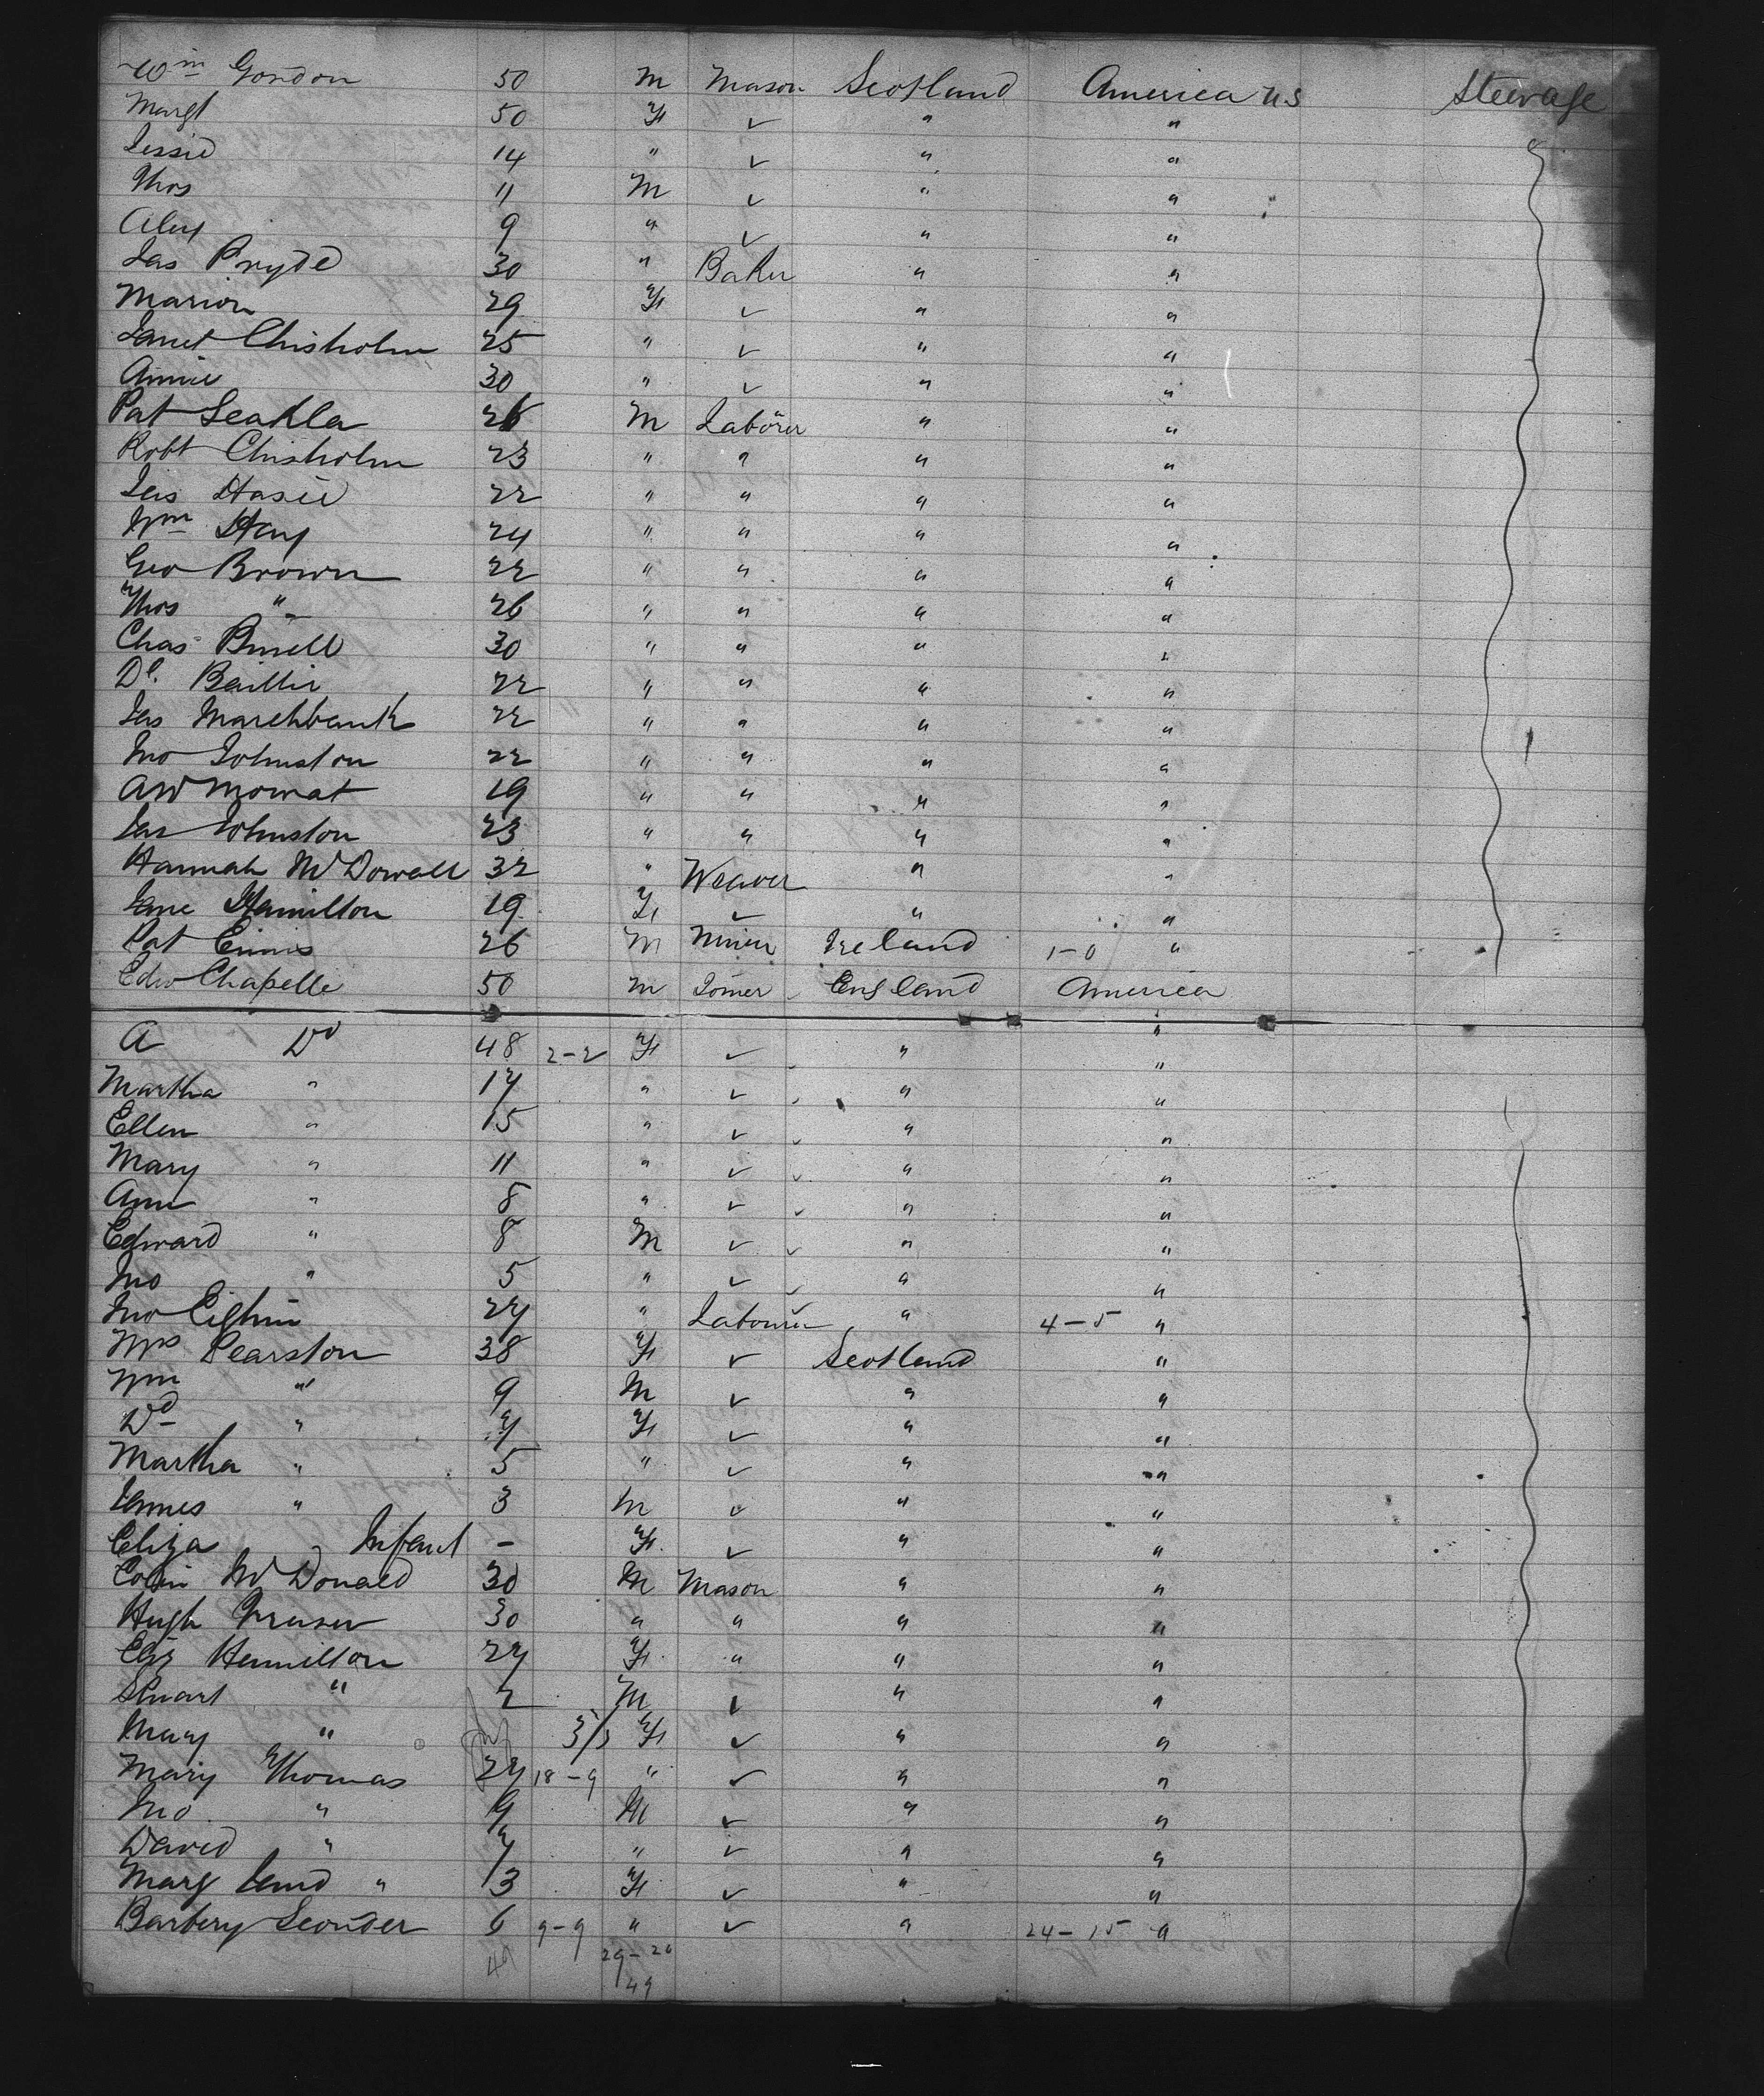 Wm Gordon 50 M Mason Scotland America US Steerage
Margt 50 F ✓ " "
Jessie 14 " ✓ " "
Thos 11 M ✓ " "
Alex 9 " ✓ " "
Jas Pryde 30 " Baker " "
Marion 29 F ✓ " "
Janet Chisholm 25 " ✓ " "
Annie 30 " ✓ " "
Pat 26 M Laborer " "
Robt Chisholm 23 " " " "
Jas Hasie 22 " " " "
Wm Hay 24 " " " "
Geo Brown 22 " " " "
Thos " 26 " " " "
Chas 30 " " " "
Dl. Baillie 22 " " " "
Jas Marchbank 22 " " " "
Jno Johnston 22 " " " "
AW Mowat 19 " " " "
Jas Johnston 23 " " " "
Hannah McDowall 32 " Weaver " "
Jane Hamilton 19 F ✓ " "
Pat Ennis 26 M Miner Ireland 1-0 "
Edw Chapelle 50 M Joiner England America
A Do 48 2-2 F ✓ " "
Martha " 17 " ✓ " "
Ellen " 15 " ✓ " "
Mary " 11 " ✓ " "
Ann " 8 " ✓ " "
Edward " 8 M ✓ " "
Jno " 5 " ✓ " "
Jno 27 " Labourer " 4-5 "
Mrs Pearston 38 F ✓ Scotland "
Wm " 9 M ✓ " "
Do " 7 F ✓ " "
Martha " 5 " ✓ " "
James " 3 M ✓ " "
Eliza Infant - F ✓ " "
Colin McDonald 30 M Mason " "
Hugh Fraser 30 " " " "
Eliz Hamilton 27 F " " "
Stuart " 2 M ✓ " "
Mary " 3/3 F ✓ " "
Mary Thomas 27 18-9 " ✓ " "
Jno " 9 M ✓ " "
David " 7 " ✓ " "
Marg Jane " 3 F ✓ " "
Barbery 6 9-9 " ✓ " 24-15 "
49 29-20
49